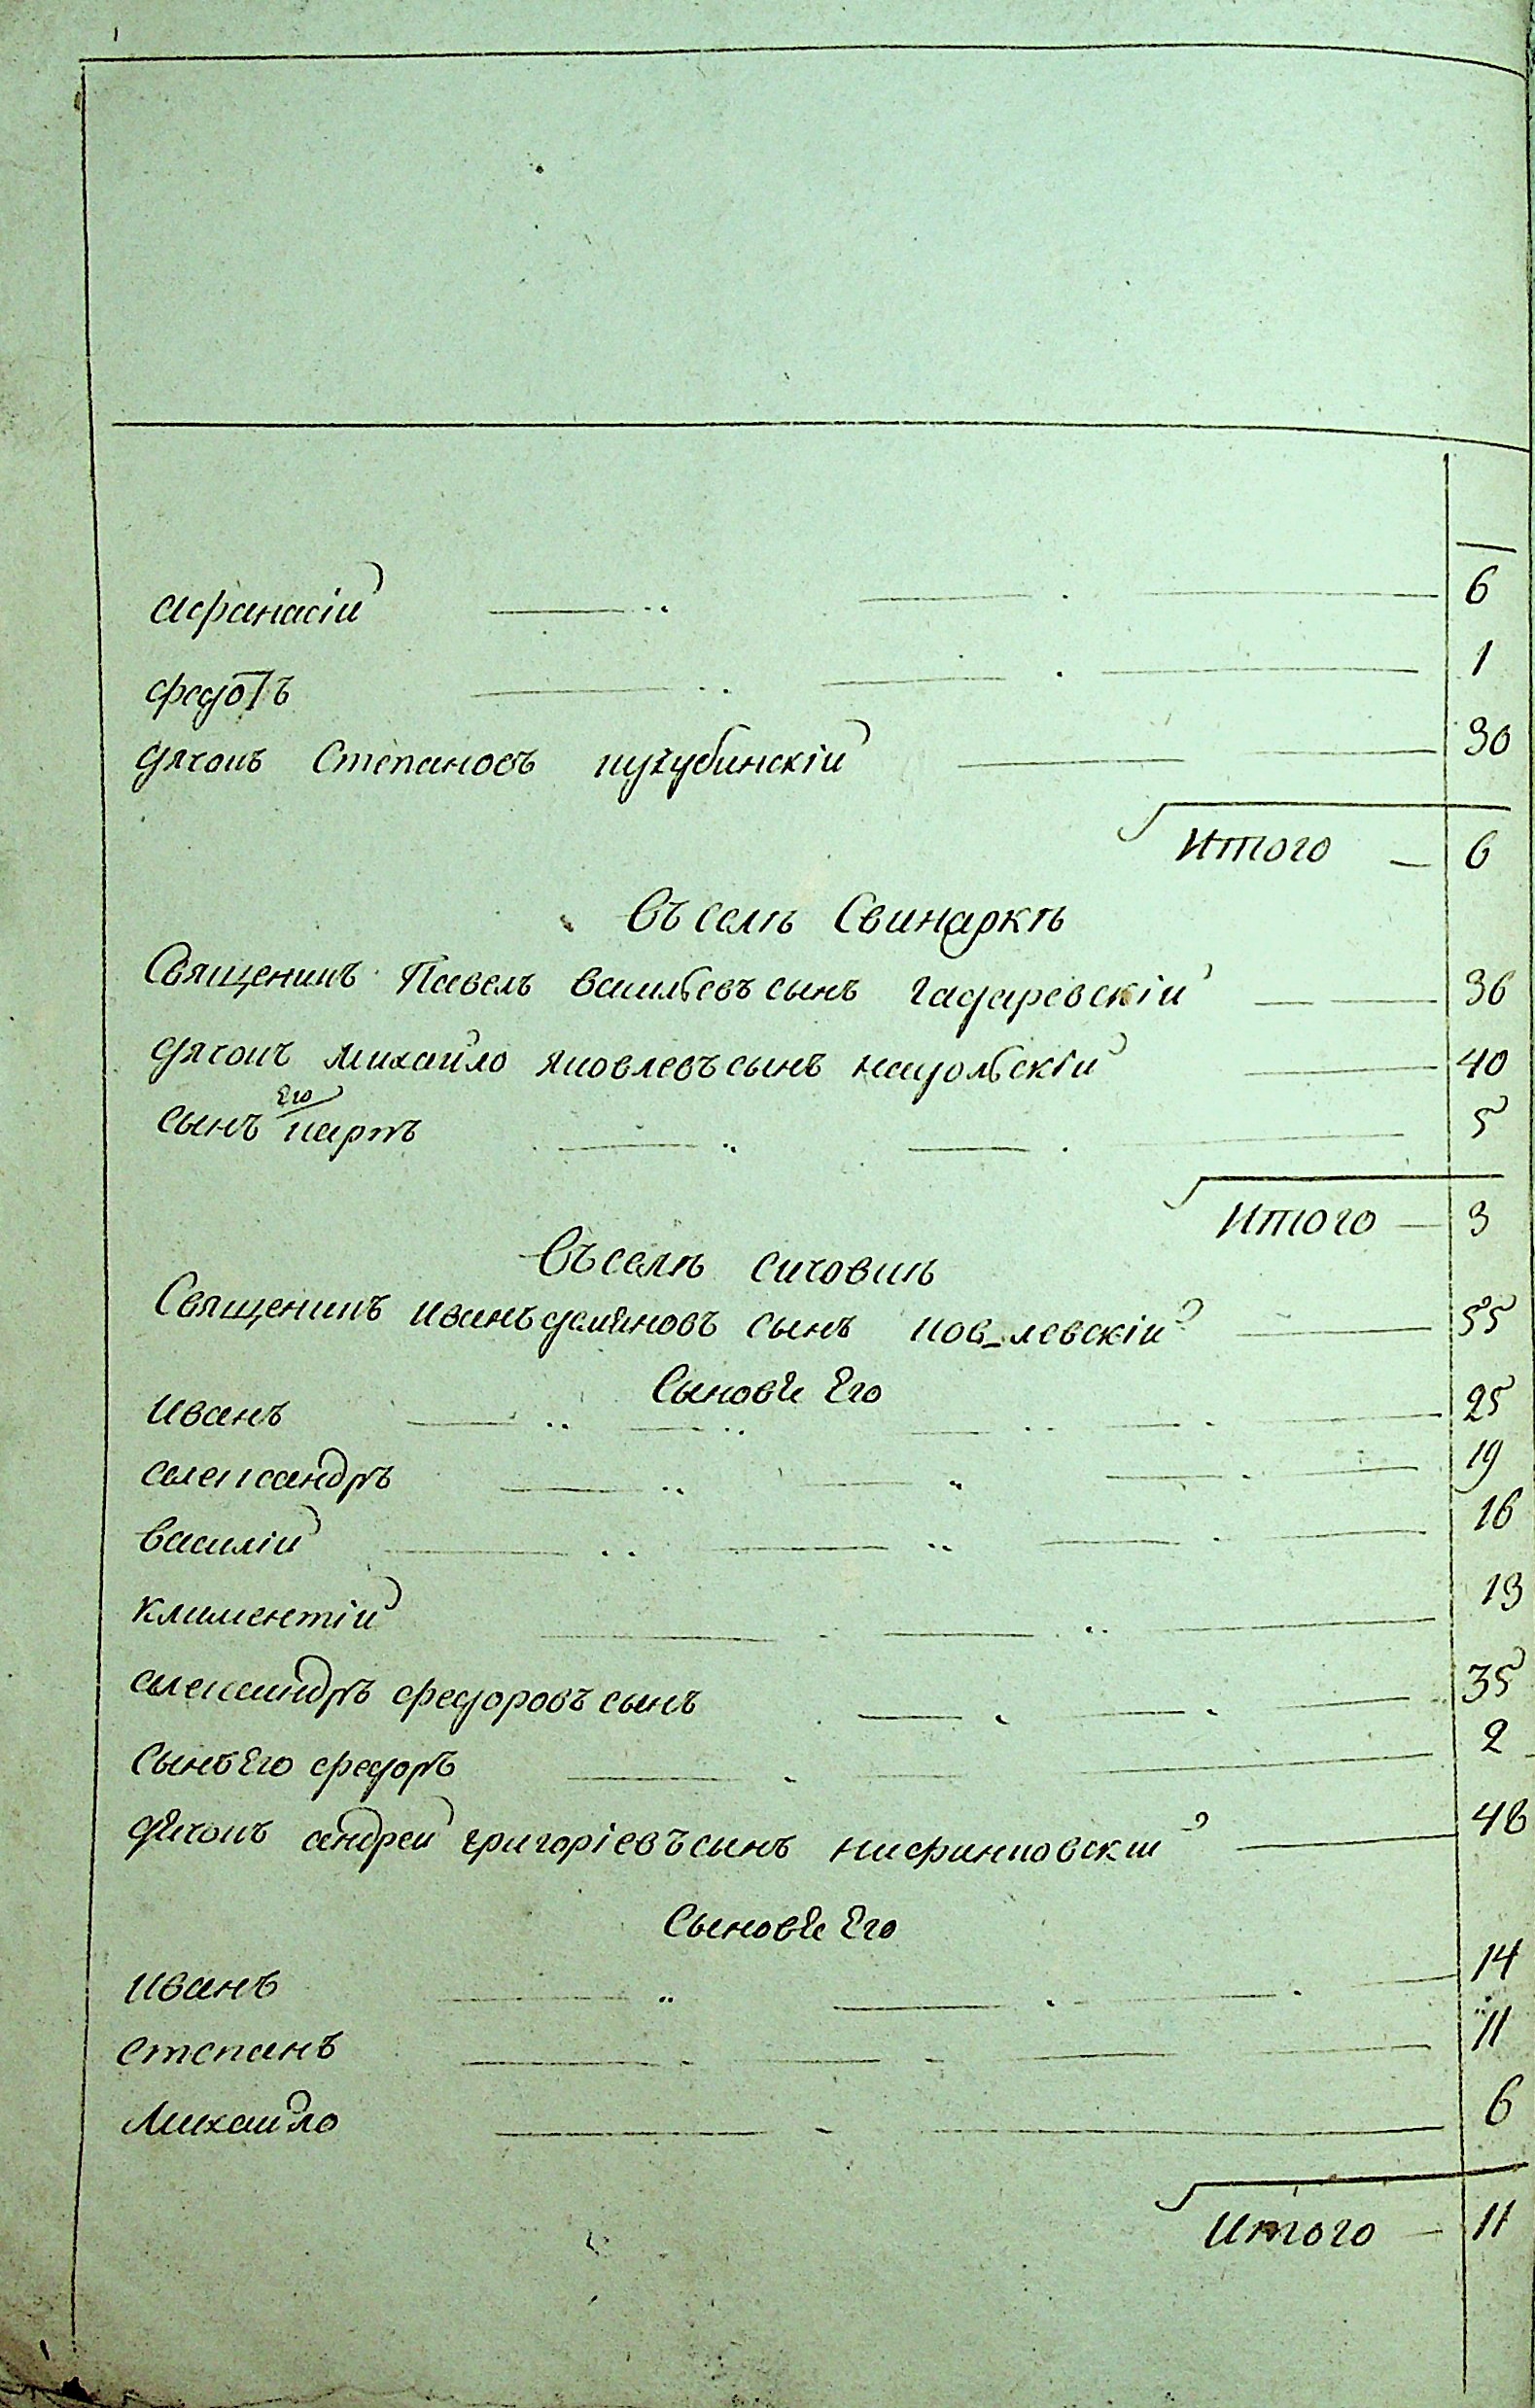 афанасій 6
федотъ 1
дячокъ Степановъ 30
Итого 6
Въ селѣ Свинаркѣ
Священикъ Павелъ васильевъ сынъ гадаревскій 36
дячокъ Михайло яковлевъ сынъ надольскій 40
сынъ Его карпъ 5
Итого 3
Въ селѣ сичовки
Священикъ иванъ демяновъ сынъ 55
Сынове Его
иванъ 25
александръ 19
василій 16
климентій 13
александръ федоровъ сынъ 35
сынъ Его федоръ 2
дячокъ андрей григоріевъ сынъ 48
Сынове Его
иванъ 14
степанъ 11
михайло 6
Итого 11